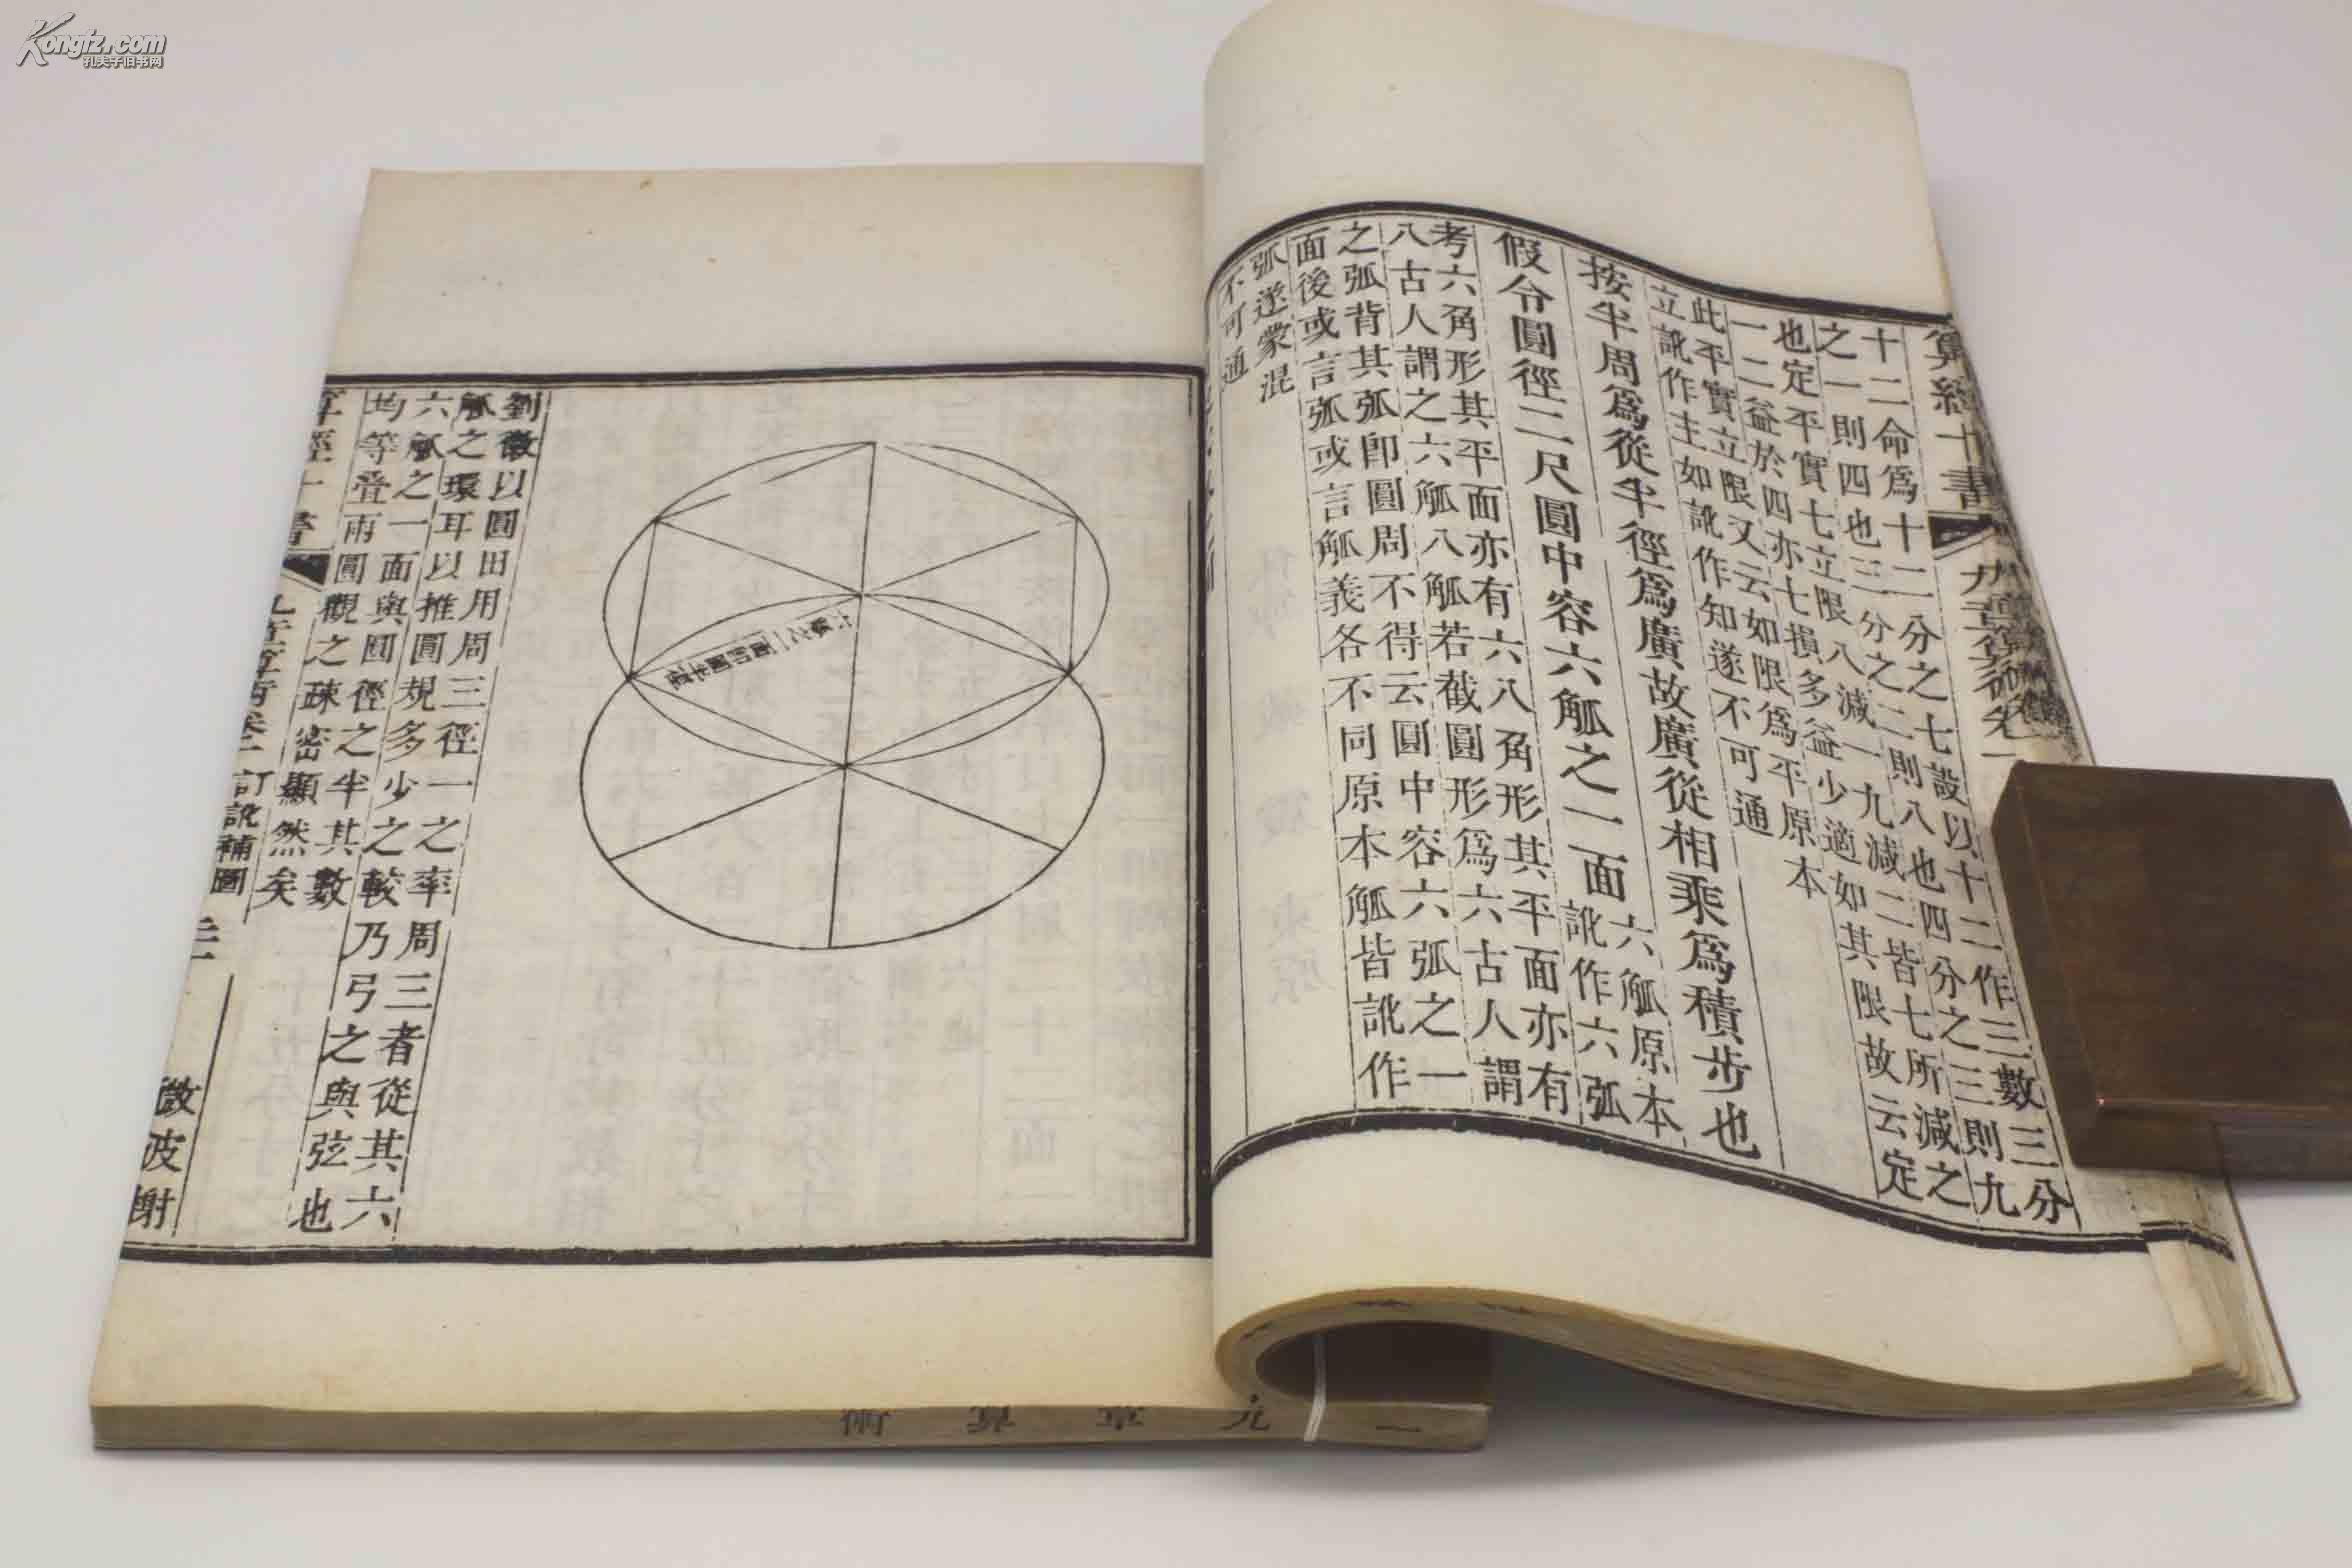 Kongfz.com
孔夫子旧书网
算經十書
九章算術卷一
十二命爲十二分之七設以十二作三數三分
之一則四也三分之二則八也四分之三則九
也定平實七立限八減一九減二皆七所減之
一二益於四亦七損多益少適如其限故云定
此平實立限又云如限爲平原本
立訛作主如訛作知遂不可通
按半周爲從半徑爲廣故廣從相乘爲積步也
假令圓徑二尺圓中容六觚之一面
六觚原本
訛作六弧
考六角形其平面亦有六八角形其平面亦有
八古人謂之六觚八觚若截圓形爲六古人謂
之弧背其弧卽圓周不得云圓中容六弧之一
面後或言弧或言觚義各不同原本觚皆訛作
弧遂蒙混
不可通
六觚之一面卽圓半徑
劉徽以圓田用周三徑一之率周三者從其六
觚之環耳以推圓規多少之較乃弓之與弦也
六觚之一面與圓徑之半其數
均等叠兩圓觀之疎密顯然矣
算經十書
九章算術卷一訂訛補圖
微波榭
術算章九一